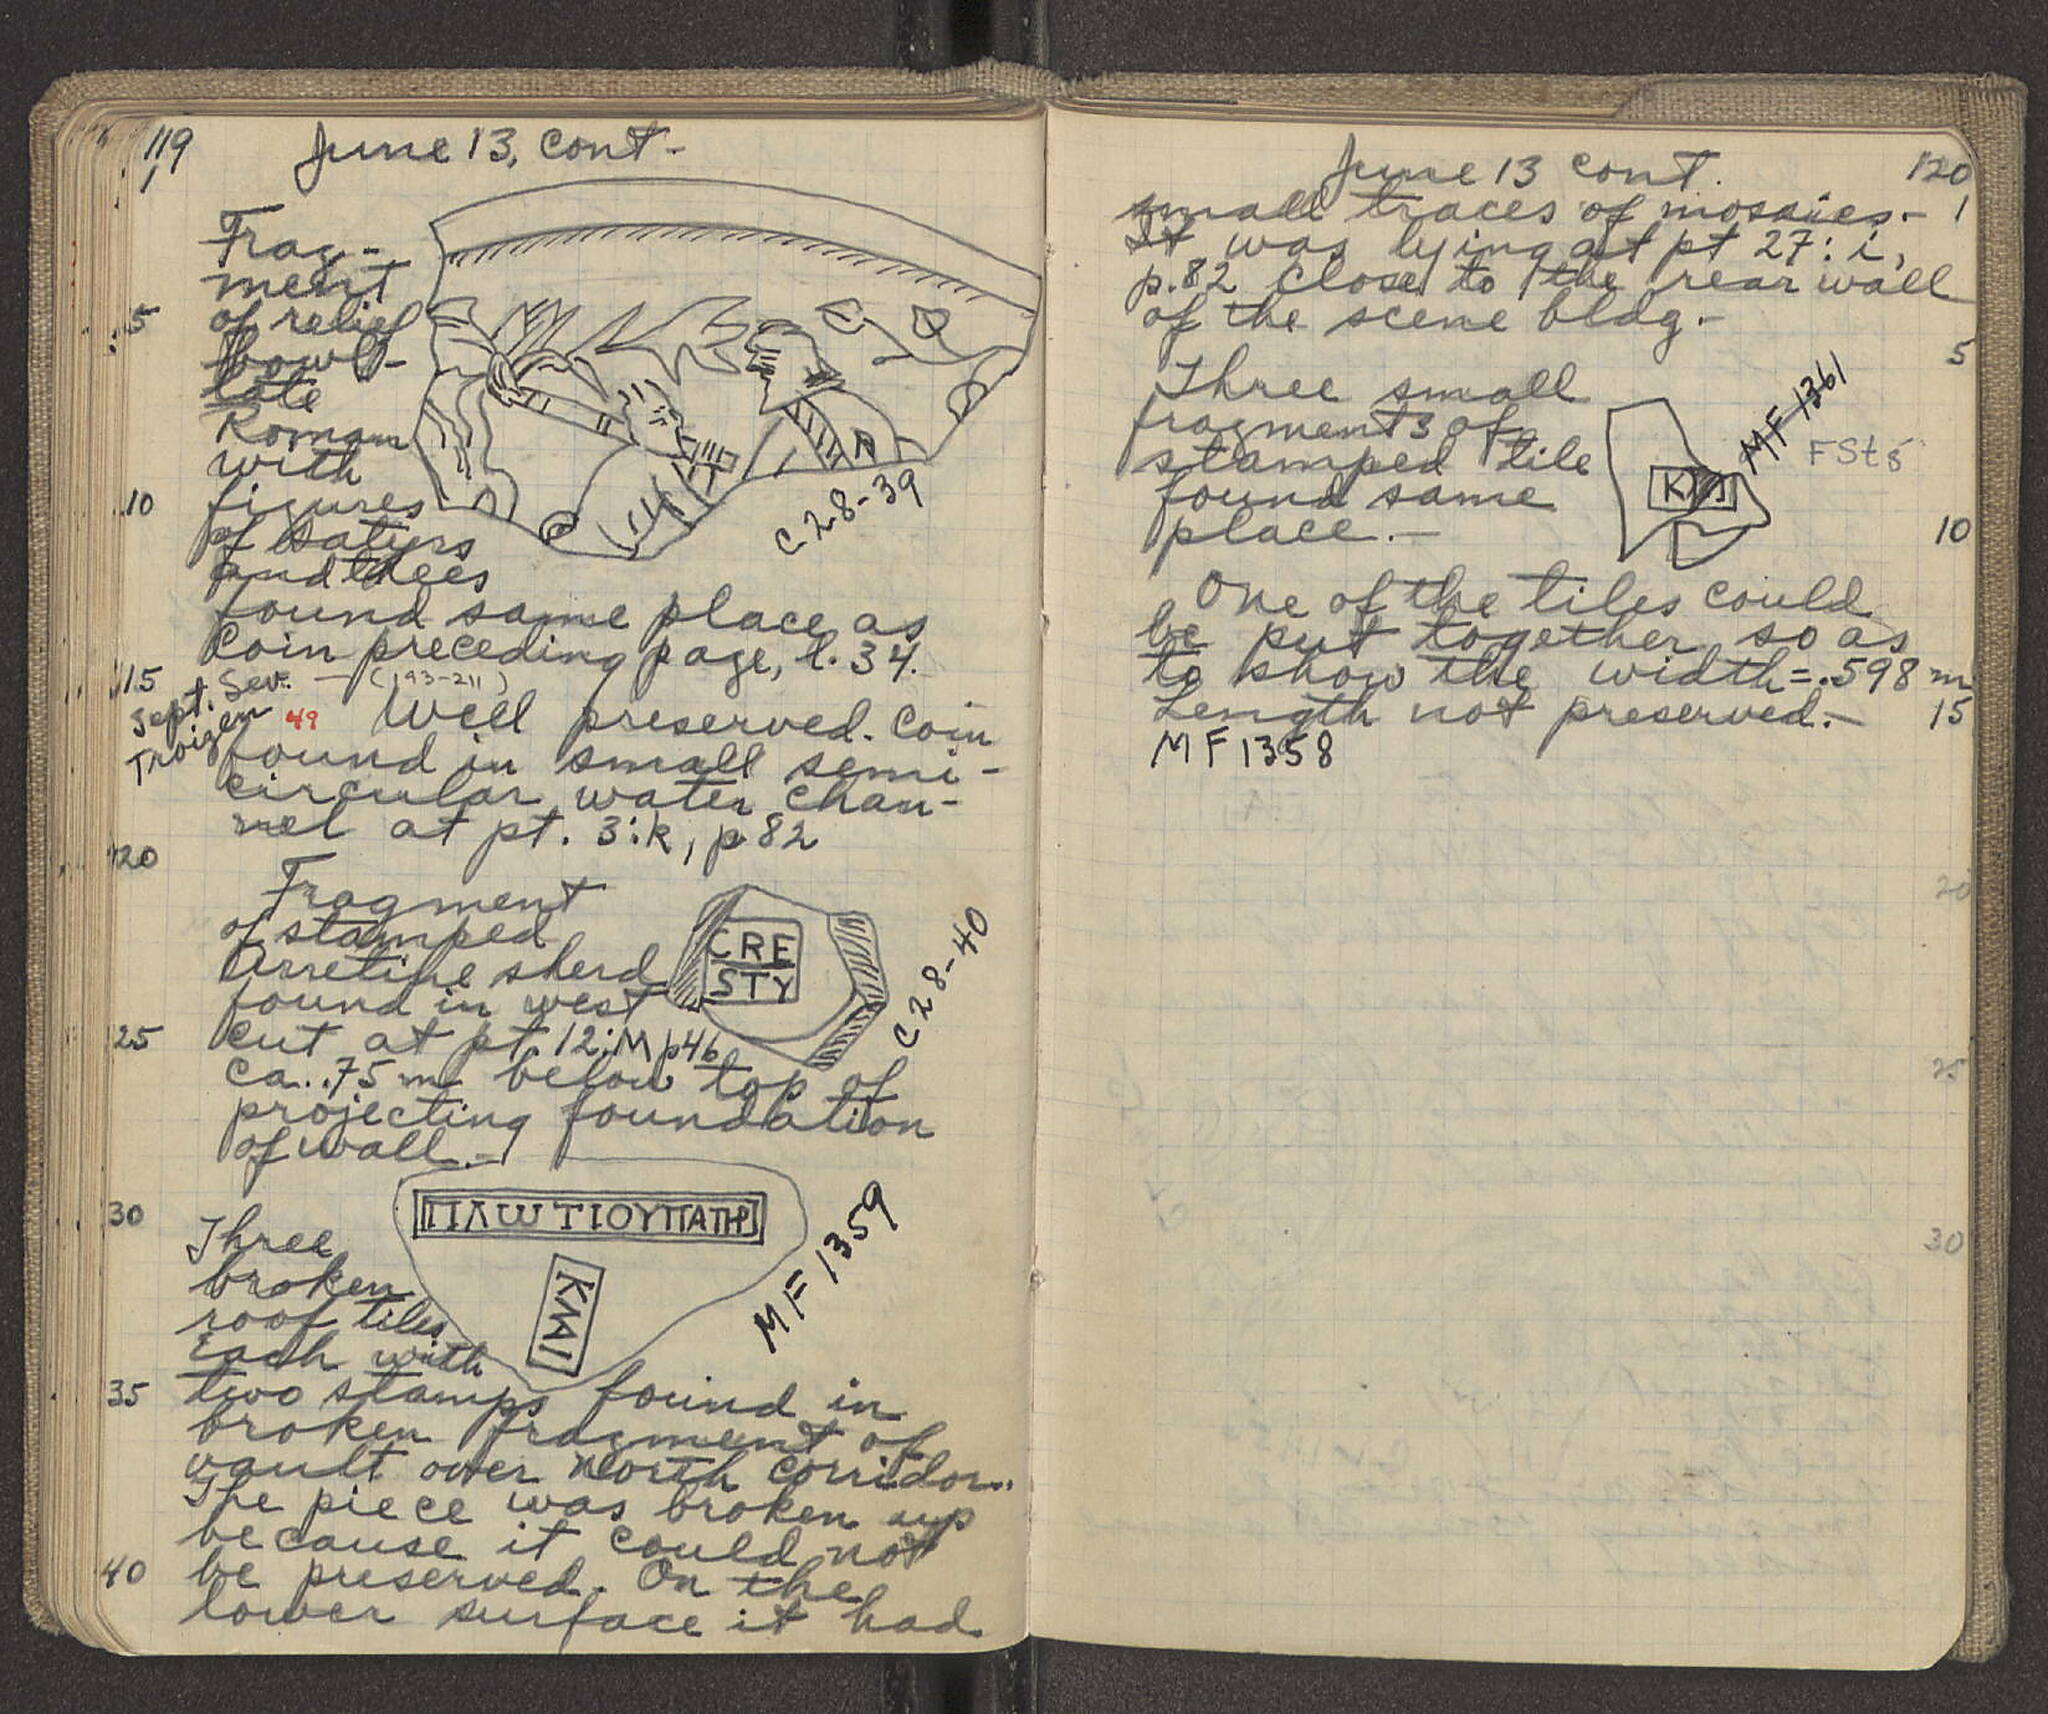 119
June 13, cont-
1
Frag-
ment
5
of relief
bowl-
late
Roman
with
10
figures
of satyrs
and trees
C 28-39
found same place as
coin preceding page, l. 34.
15
Sept. Sev. - (193-211)
Troizen
49
Well preserved. Coin
found in small semi-
circular water chan-
nel at pt. 3:k, p 82
20
Fragment
of stamped
Arretine sherd
found in west
CRE
STY
C 28-40
25
cut at pt. 12:M p46
ca. .75 m below top of
projecting foundation
of wall.-
30
ΠΛΩΤΙΟΥΠΑΤΗΡ
ΚΛΑΙ
MF 1359
Three
broken
roof tiles
Each with
35
two stamps found in
broken fragment of
vault over North corridor.
The piece was broken up
because it could not
40
be preserved. On the
lower surface it had
June 13 cont.
120
small traces of mosaics.-
1
It was lying at pt 27:i,
p.82 close to the rear wall
of the scene bldg.-
5
Three small
fragments of
stamped tile
found same
place.-
ΚΛΑΙ
MF 1361
FSt 5
10
One of the tiles could
be put together so as
to show the width=.598 m
Length not preserved.-
15
MF 1358
20
25
30